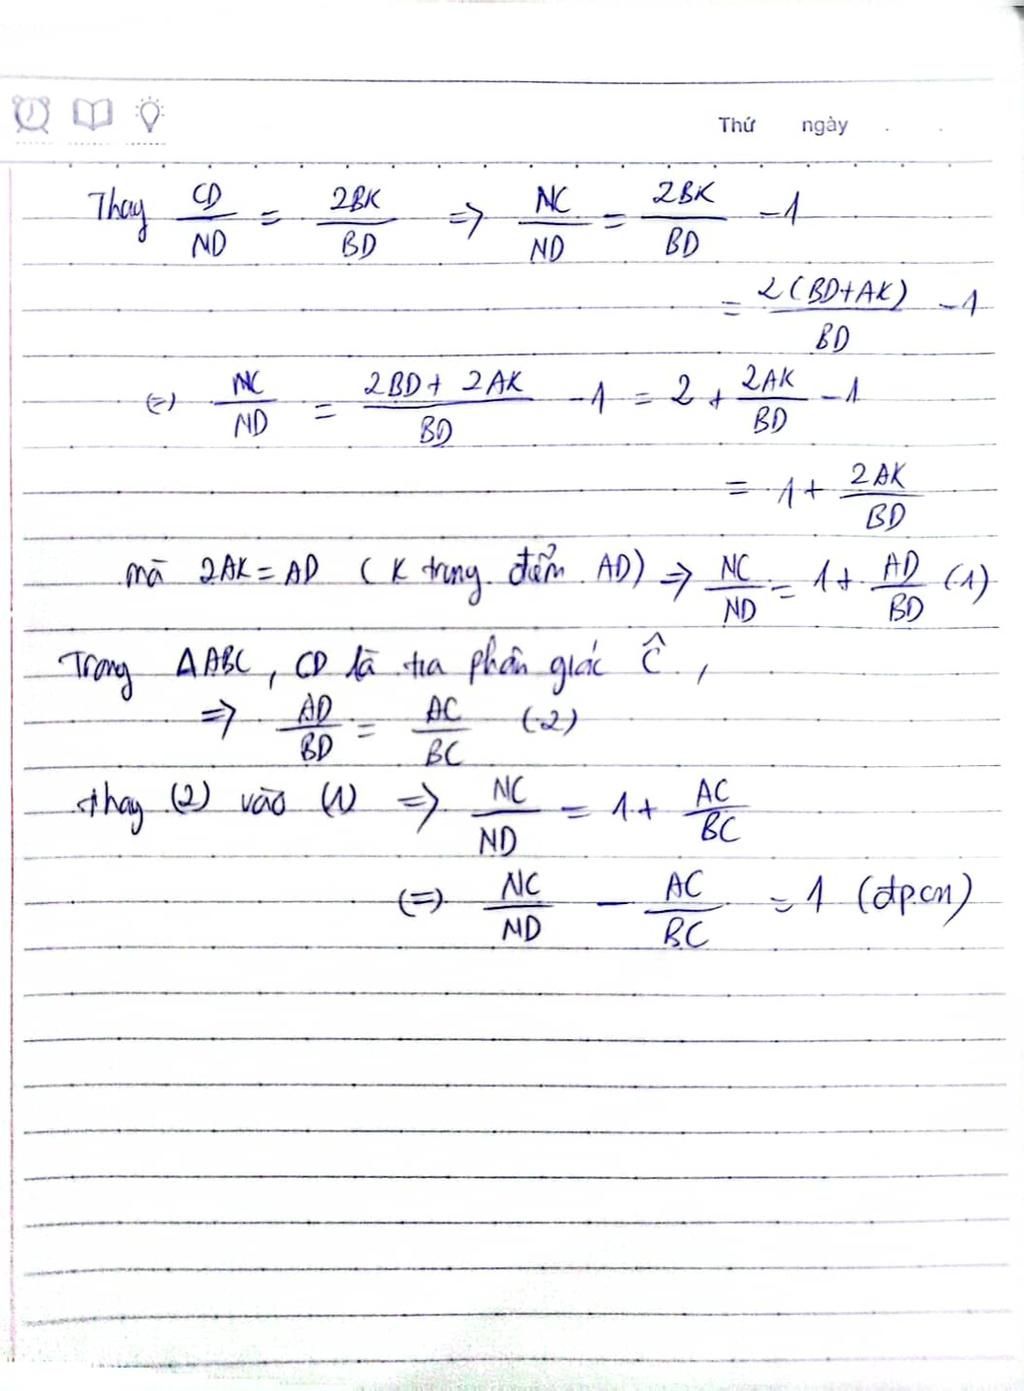 Thứ ngày
Thay CD/ND = 2BK/BD => NC/ND = 2BK/BD - 1
= 2(BD+AK)/BD - 1
(=) NC/ND = 2BD + 2AK/BD - 1 = 2 + 2AK/BD - 1
= 1 + 2AK/BD
mà 2AK = AD (K trung điểm AD) => NC/ND = 1 + AD/BD (1)
Trong ΔABC, CD là tia phân giác Ĉ,
=> AD/BD = AC/BC (2)
thay (2) vào (1) => NC/ND = 1 + AC/BC
(=) NC/ND - AC/BC = 1 (đpcm)